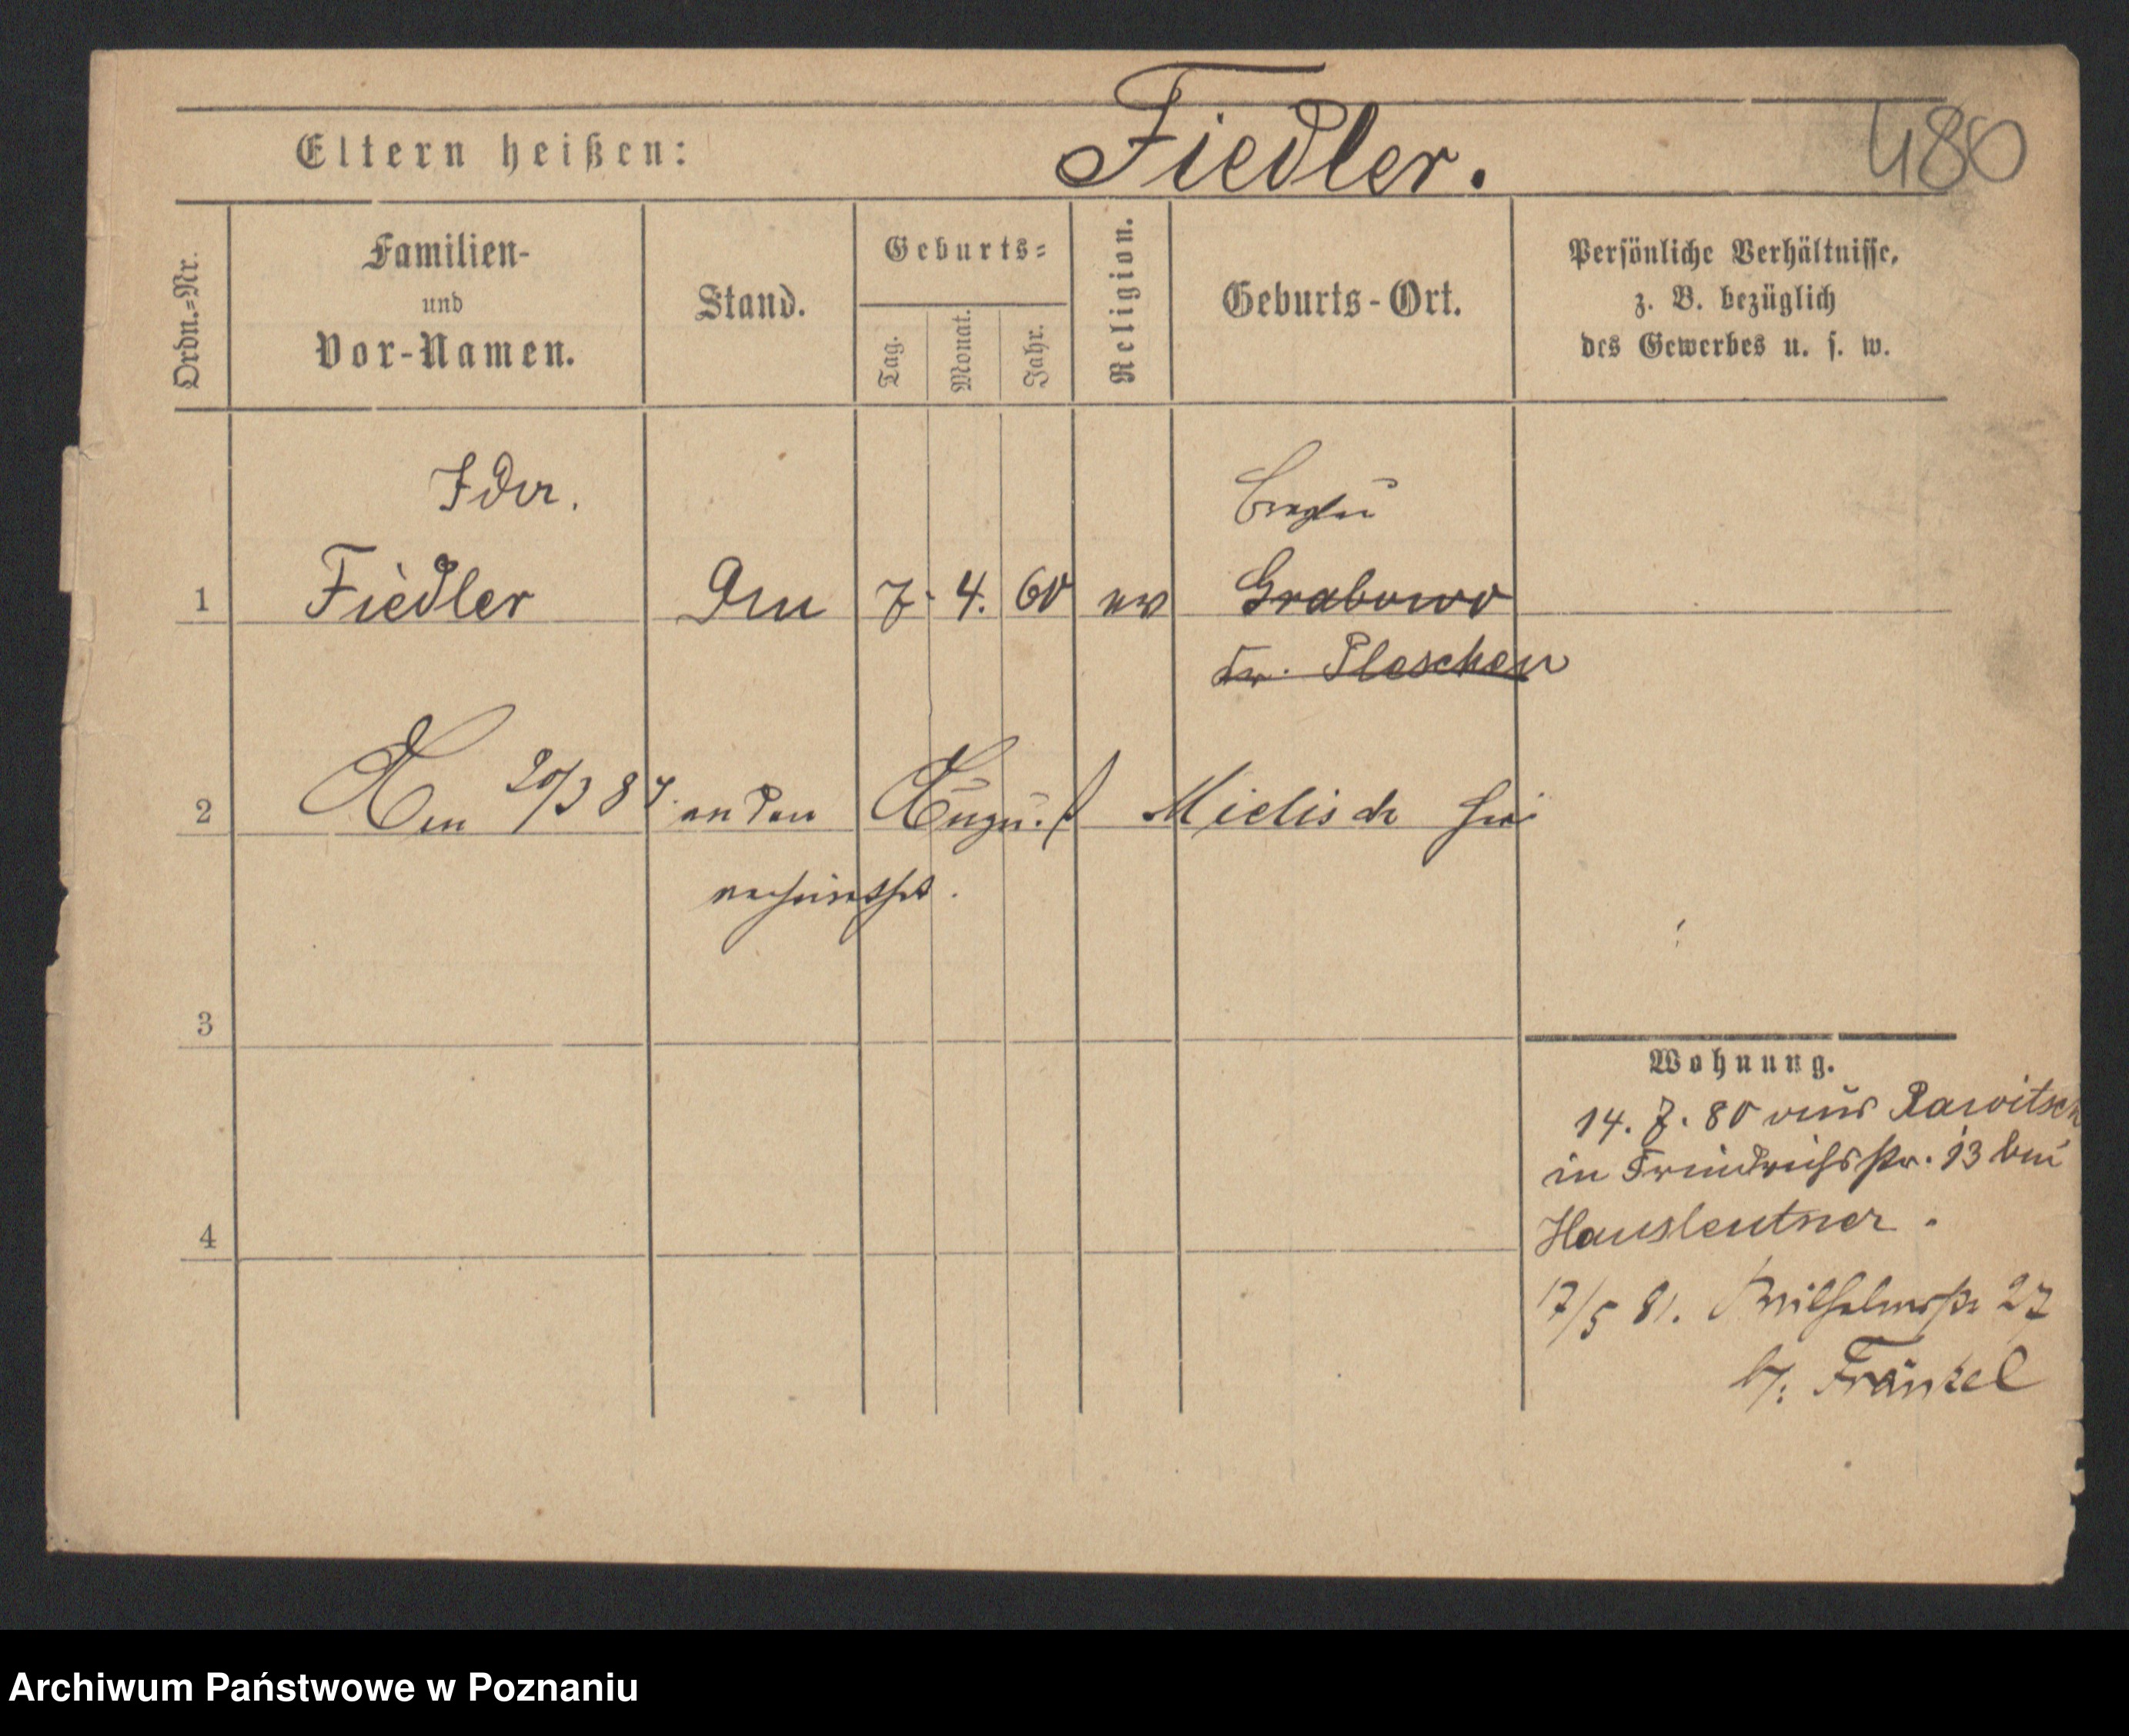 Eltern heißen: Fiedler. 480
Ordn.=Nr.
Familien-
und
Vor-Namen.
Stand.
Geburts=
Tag.
Monat.
Jahr.
Religion.
Geburts-Ort.
Persönliche Verhältnisse,
z. B. bezüglich
des Gewerbes u. s. w.
Ida.
1 Fiedler 7. 4. 60 ev Grabowo
Kr. Pleschen
2 Am 20/3 87. an den August Mielisch hier
verheirathet.
3
Wohnung.
14. 7. 80 aus Rawitsch
in Friedrichsstr. 13 bei
Hausleutner.
4
17/5 81. Wilhelmsstr 27
b/: Fränkel
Archiwum Państwowe w Poznaniu